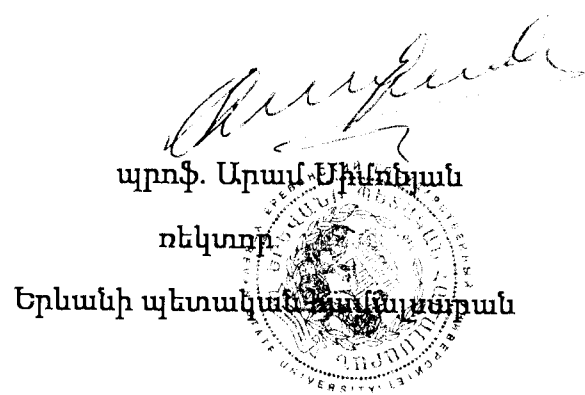 պրոֆ. Արամ Սիմոնյան
ռեկտոր
Երևանի պետական համալսարան